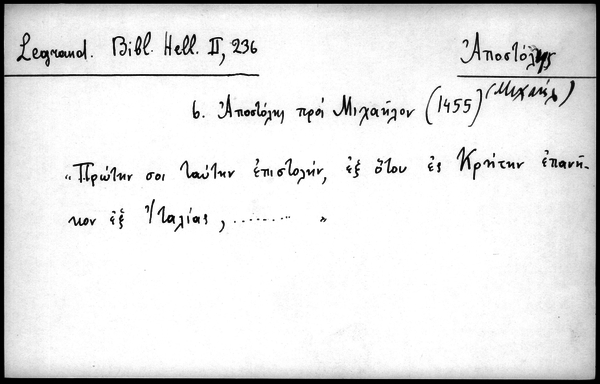 Legrand. Bibl. Hell. II, 236
Ἀποστόλης
(Μιχαήλ)
6. Ἀποστόλης πρὸς Μιχαῆλον (1455)
„Πρώτην σοι ταύτην ἐπιστολήν, ἐξ ὅτου ἐς Κρήτην ἐπανῆ-
κον ἐξ Ἰταλίας, ......... "